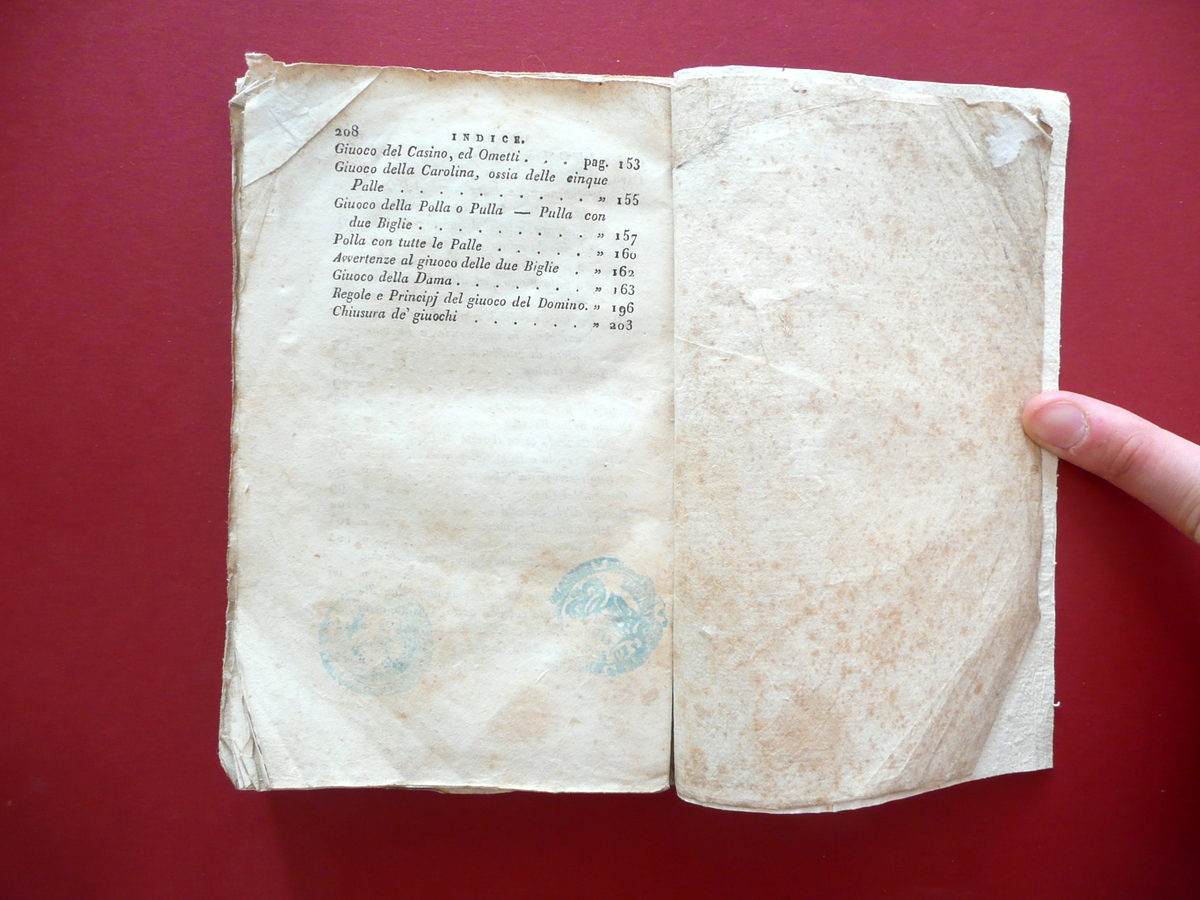 208 INDICE.
Giuoco del Casino, ed Ometti . . . pag. 153
Giuoco della Carolina, ossia delle cinque
Palle . . . . . . . . . . „ 155
Giuoco della Polla o Pulla — Pulla con
due Biglie . . . . . . . . . „ 157
Polla con tutte le Palle . . . . . „ 160
Avvertenze al giuoco delle due Biglie . „ 162
Giuoco della Dama . . . . . . . „ 163
Regole e Principj del giuoco del Domino. „ 196
Chiusura de' giuochi . . . . . . „ 203